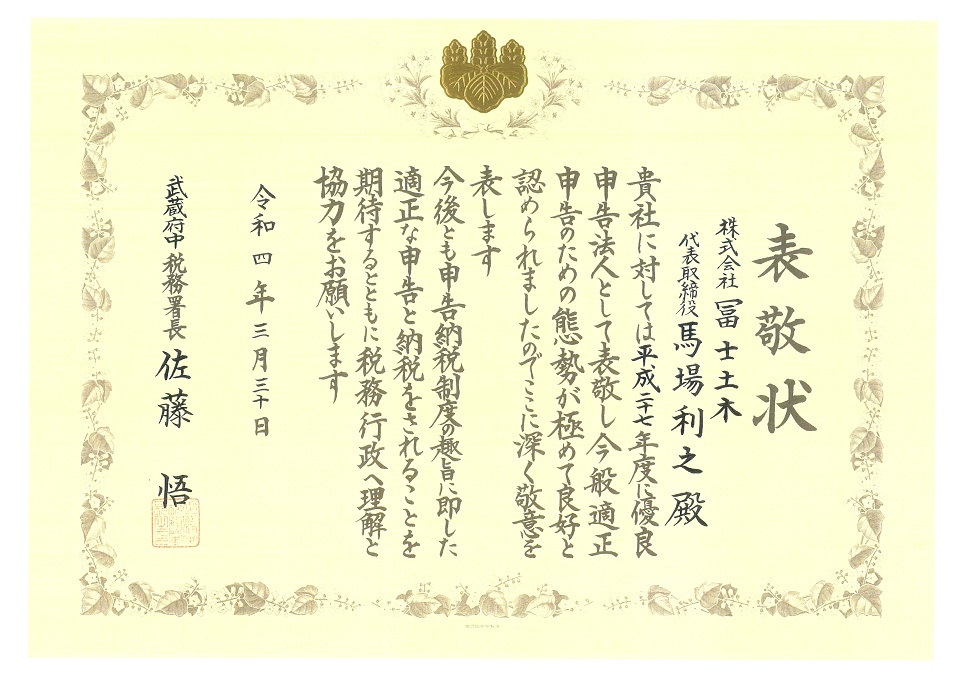 表敬状
株式会社 冨士土木
代表取締役 馬場利之 殿
貴社に対しては平成二十七年度に優良
申告法人として表敬し今般適正
申告のための態勢が極めて良好と
認められましたのでここに深く敬意を
表します
今後とも申告納税制度の趣旨に即した
適正な申告と納税をされることを
期待するとともに税務行政へ理解と
協力をお願いします
令和四年三月三十日
武蔵府中税務署長 佐藤 悟